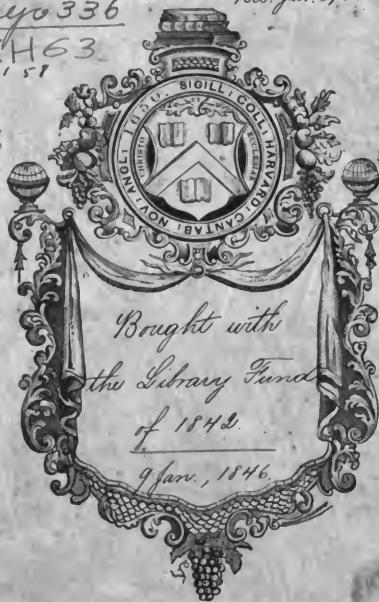 336
H63
1650. SIGILL: COLL: HARVARD: CANTAB: NOV: ANGL:
CHRISTO ECCLESIAE
Bought with
the Library Fund
of 1842.
9 Jan., 1846.